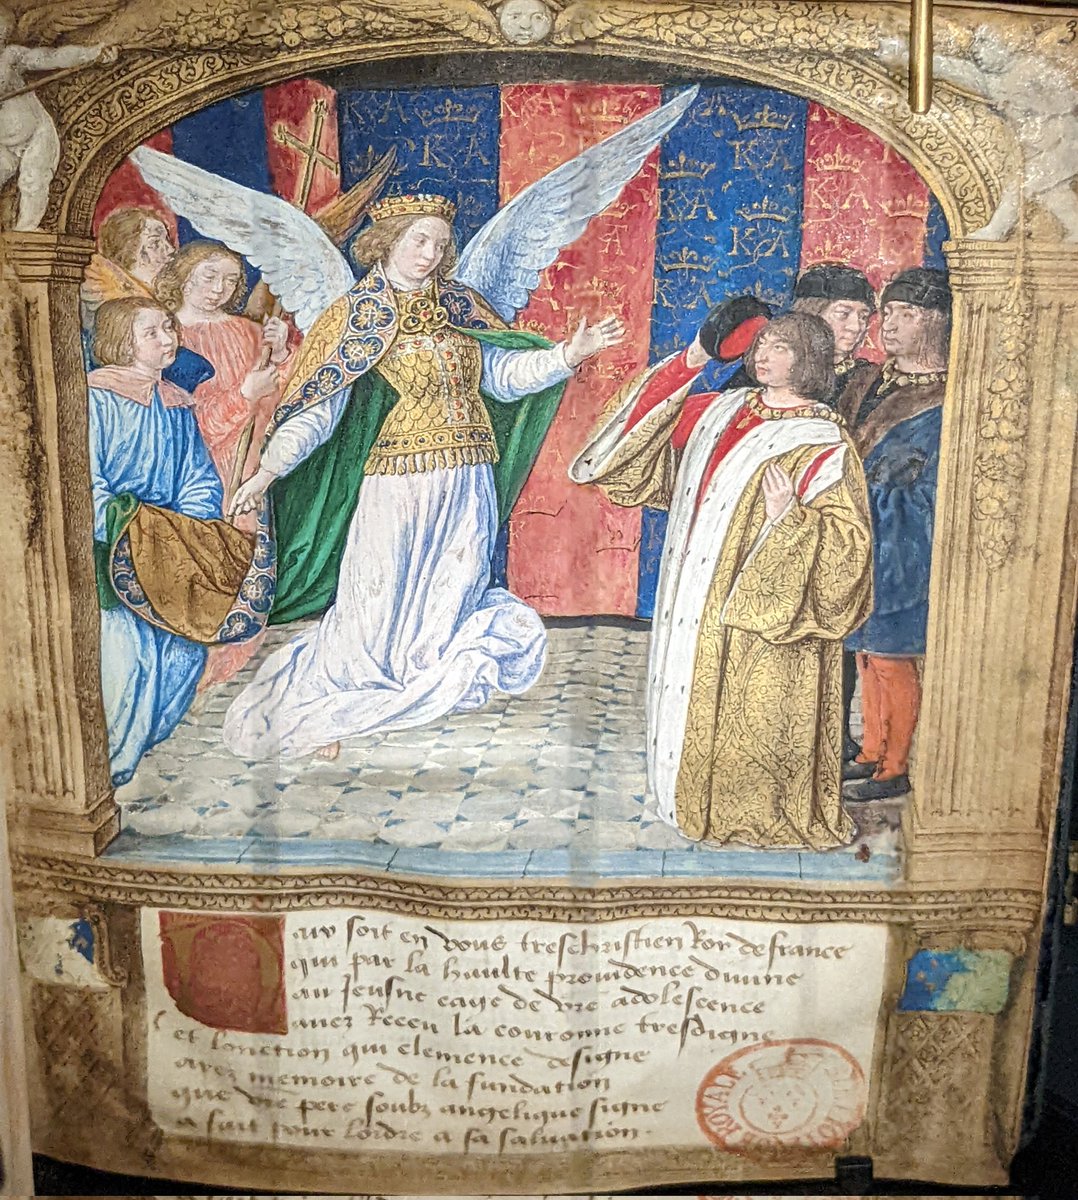 K A
K A
K A
K A
K A
K A
K A
K A
soit en vous treschristien Roy de france
qui par la haulte prouidence diuine
au Jeusne eage de vre adolescence
auez Receu la couronne tresdigne
et lonction qui clemence designe
ayez memoire de la fundation
que vre pere soubz angelique signe
a fait pour lordre a sa saluation
ROYALE